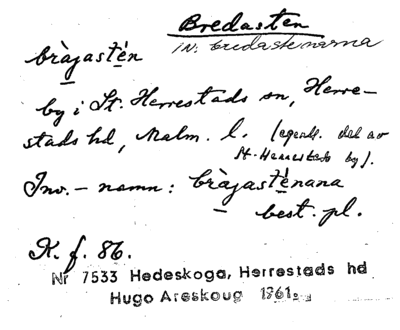 Bredasten
in: bredastenarna
bràjastén
by i St. Herrestads sn, Herre-
stads hd, Malm. l. (egentl. del av
St. Herrestads by).
Inv.-namn: bràjasténana
best. pl.
K. f. 86.
Nr 7533 Hedeskoga, Herrestads hd
Hugo Areskoug 1961.